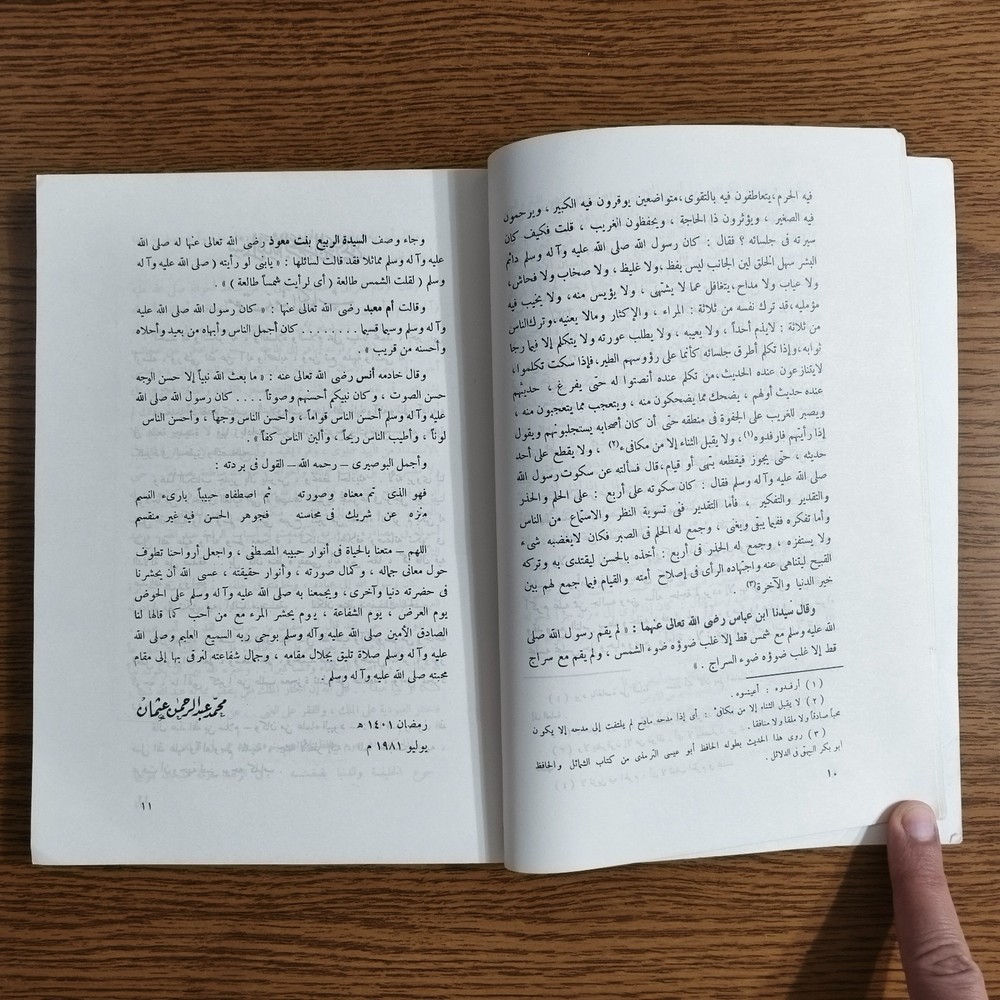 فيه الحرم،يتعاطفون فيه بالتقوى،متواضعين يوقرون فيه الكبير ، ويرحمون
فيه الصغير ، ويؤثرون ذا الحاجة ، ويحفظون الغريب ، قلت فكيف كان
سيرته فى جلسائه ؟ فقال : كان رسول الله صلى الله عليه وآله وسلم دائم
البشر سهل الخلق لين الجانب ليس بفظ،ولا غليظ ، ولا صخاب ولا فحاش،
ولا عياب ولا مداح،يتغافل عما لا يشتهى ، ولا يؤيس منه، ولا يخيب فيه
مؤمليه،قد ترك نفسه من ثلاثة : المراء ، والإكثار ومالا يعنيه،وترك الناس
من ثلاثة : لايذم أحداً ، ولا يعيبه ، ولا يطلب عورته ولا يتكلم إلا فيما رجا
ثوابه،وإذا تكلم أطرق جلسائه كأنما على رؤوسهم الطير،فإذا سكت تكلموا،
لايتنازعون عنده الحديث،من تكلم عنده أنصتوا له حتى يفرغ ، حديثهم
عنده حديث أولهم ، يضحك مما يضحكون منه ، ويتعجب مما يتعجبون منه ،
ويصبر للغريب على الجفوة فى منطقه حتى أن كان أصحابه يستجلبونهم ويقول
إذا رأيتهم فارفدوه(١)، ولا يقبل الثناء إلا من مكافىء(٢) ، ولا يقطع على أحد
حديثه ، حتى يجوز فيقطعه بنهى أو قيام،قال فسألته عن سكوت رسول الله
صلى الله عليه وآله وسلم فقال : كان سكوته على أربع : على الحلم والحذر
والتقدير والتفكير ، فأما التقدير ففى تسوية النظر والاستماع من الناس
وأما تفكره ففيما يبقى ويغنى ، وجمع له الحلم فى الصبر فكان لايغضبه شىء
ولا يستفزه ، وجمع له الحذر فى أربع : أخذه بالحسن ليقتدى به وتركه
القبيح ليتناهى عنه واجتهاده الرأى فى إصلاح أمته والقيام فيما جمع لهم بين
خير الدنيا والآخرة(٣).
وقال سيدنا ابن عباس رضى الله تعالى عنهما : « لم يقم رسول الله صلى
الله عليه وسلم مع شمس قط إلا غلب ضوؤه ضوء الشمس ، ولم يقم مع سراج
قط إلا غلب ضوؤه ضوء السراج . »
( ١ ) أرفدوه : أعينوه .
( ٢ ) لا يقبل الثناء إلا من مكافىء : أى إذا مدحه مادح لم يلتفت إلى مدحه إلا يكون
محباً صادقاً ولا ملقا ولا منافقا .
( ٣ ) روى هذا الحديث بطوله الحافظ أبو عيسى الترمذى من كتاب الشمائل والحافظ
أبو بكر البيهقى فى الدلائل .
١٠
وجاء وصف السيدة الربيع بنت معوذ رضى الله تعالى عنها له صلى الله
عليه وآله وسلم مماثلا فقد قالت لسائلها : « يابنى لو رأيته ( صلى الله عليه وآله
وسلم ( لقلت الشمس طالعة ( أى لرأيت شمساً طالعة ) » .
وقالت أم معبد رضى الله تعالى عنها : « كان رسول الله صلى الله عليه
وآله وسلم وسيما قسيما . . . . . . . . كان أجمل الناس وأبهاه من بعيد وأحلاه
وأحسنه من قريب » .
وقال خادمه أنس رضى الله تعالى عنه : « ما بعث الله نبياً إلا حسن الوجه
حسن الصوت ، وكان نبيكم أحسنهم وصوتاً . . . . كان رسول الله صلى الله
عليه وآله وسلم أحسن الناس قواماً ، وأحسن الناس وجهاً ، وأحسن الناس
لوناً ، وأطيب الناس ريحاً ، وألين الناس كفاً » .
وأجمل البوصيرى – رحمه الله– القول فى بردته :
فهو الذى تم معناه وصورته ثم اصطفاه حبيباً بارىء النسم
منزه عن شريك فى محاسنه فجوهر الحسن فيه غير منقسم
اللهم – متعنا بالحياة فى أنوار حبيبه المصطفى ، واجعل أرواحنا تطوف
حول معانى جماله ، وكمال صورته ، وأنوار حقيقته ، عسى الله أن يحشرنا
فى حضرته دنيا وآخرى ، ويجمعنا به صلى الله عليه وآله وسلم على الحوض
يوم العرض ، يوم الشفاعة ، يوم يحشر المرء مع من أحب كما قالها لنا
الصادق الأمين صلى الله عليه وآله وسلم بوحى ربه السميع العليم وصلى الله
عليه وآله وسلم صلاة تليق بجلال مقامه ، وجمال شفاعته لنرقى بها إلى مقام
محبته صلى الله عليه وآله وسلم .
محمد عبد الرحمن عثمان
رمضان ١٤٠١ هـ
يوليو ١٩٨١ م
١١